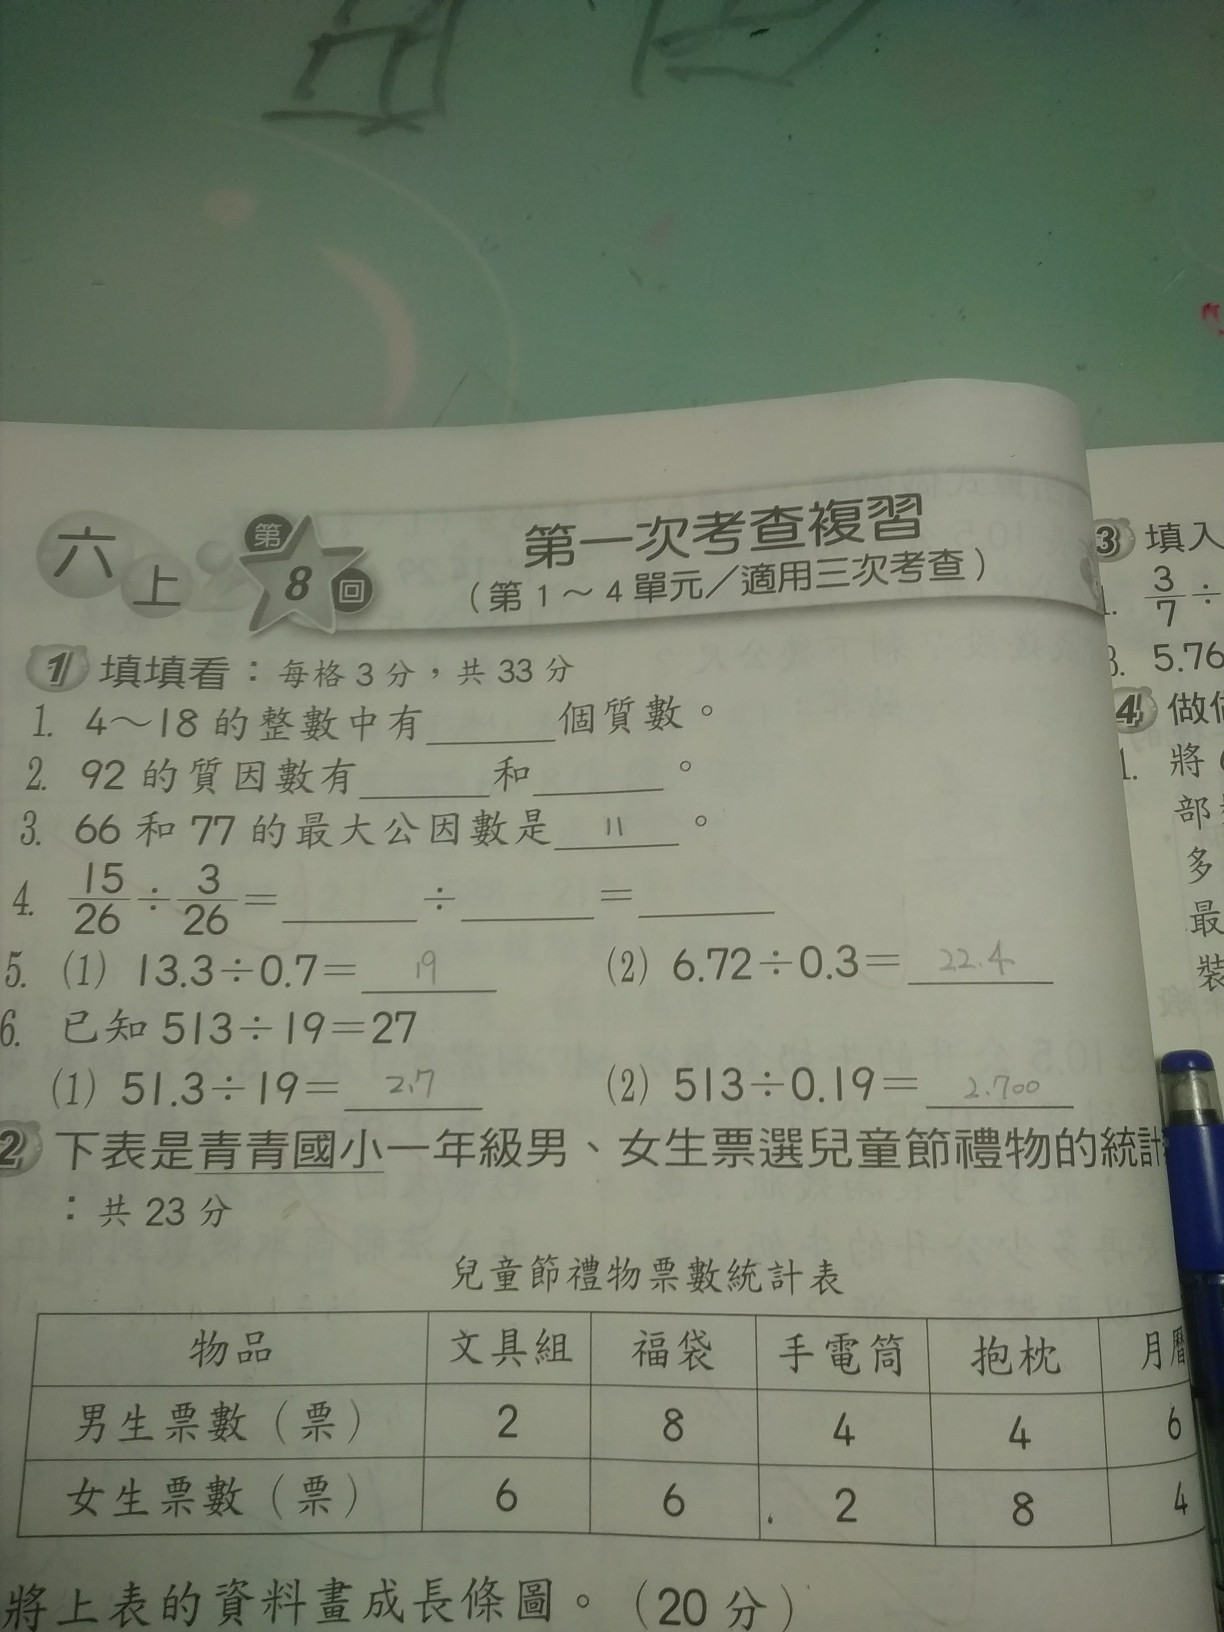 六上 第8回 第一次考查複習
(第1～4單元／適用三次考查)
1 填填看：每格3分，共33分
1. 4～18的整數中有______個質數。
2. 92的質因數有______和______。
3. 66和77的最大公因數是 11 。
4. 15/26÷3/26=______÷______=______
5. (1) 13.3÷0.7= 19 (2) 6.72÷0.3= 22.4
6. 已知513÷19=27
(1) 51.3÷19= 2.7 (2) 513÷0.19= 2.700
2 下表是青青國小一年級男、女生票選兒童節禮物的統計
：共23分
兒童節禮物票數統計表
物品 文具組 福袋 手電筒 抱枕 月曆
男生票數（票） 2 8 4 4 6
女生票數（票） 6 6 2 8 4
將上表的資料畫成長條圖。（20分）
3 填入
1. 3/7÷
3. 5.76
4 做做
1. 將
部
多
最
裝